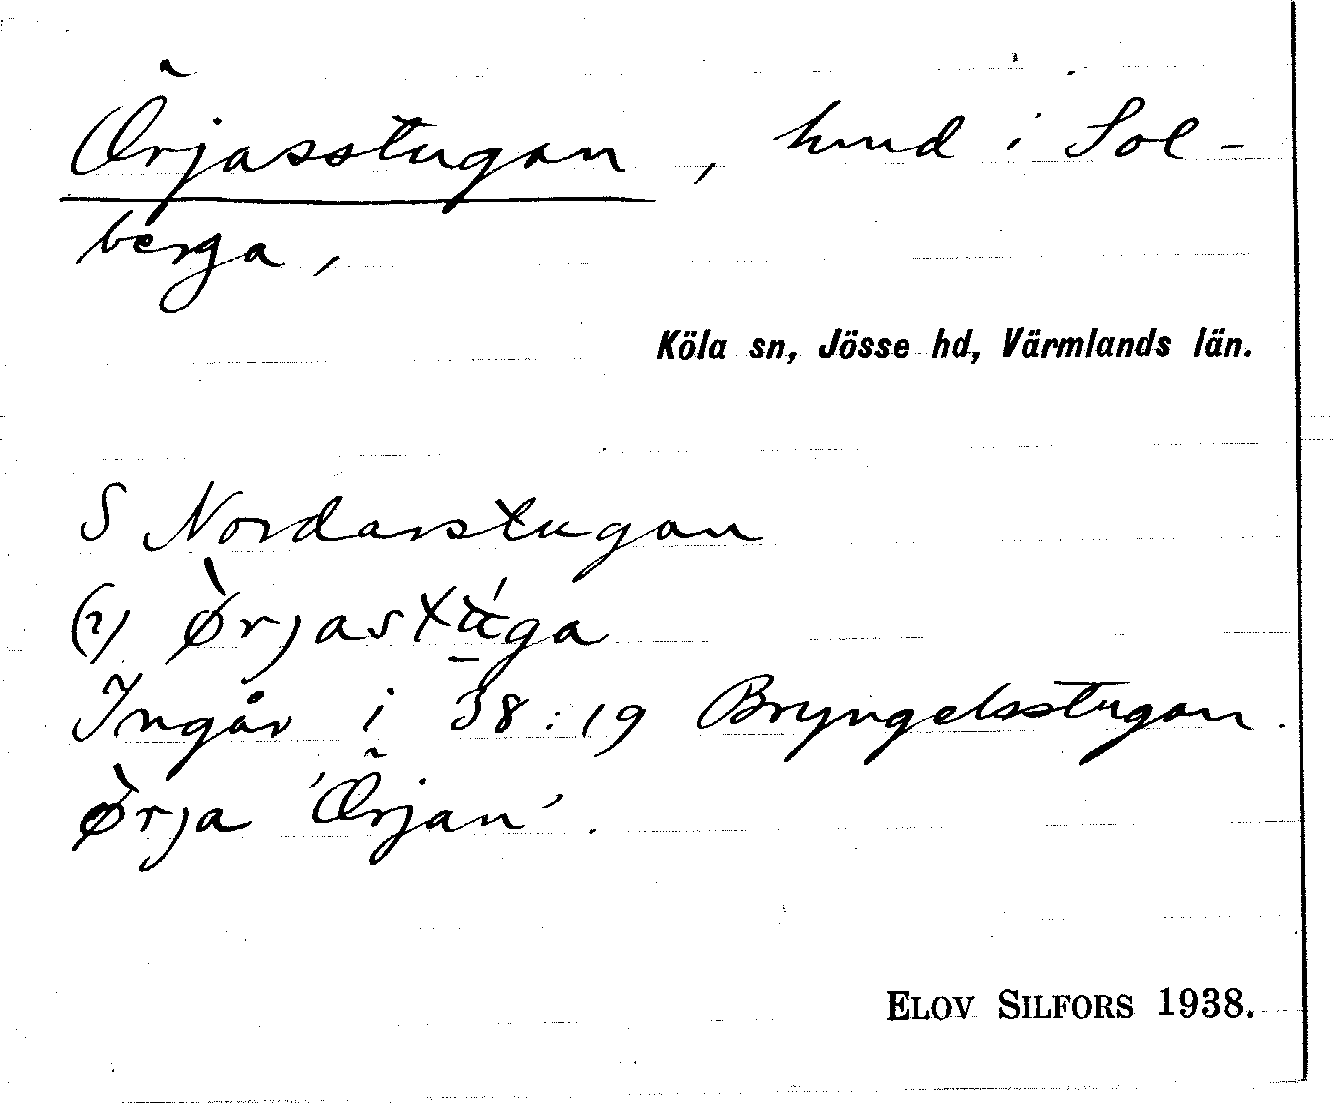 Örjasstugan, hmd i Sol-
berga,
Köla sn, Jösse hd, Värmlands län.
S Nordarstugan
(2) ø̀rjastá̱ga
Ingår i 38:19 Bryngelsstugan.
ø̀rja 'Örjan'.
ELOV SILFORS 1938.